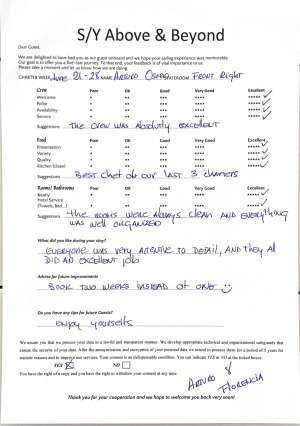 S/Y Above & Beyond
Dear Guest,
We are delighted to have had you as our guest onboard and we hope your sailing experience was memorable.
Our goal is to offer you a five-star journey. To that end, your feedback is of vital importance to us.
Please take a moment and let us know how we are doing.
CHARTER WEEK June 21-28 NAME Arturo BEDROOM Front Right
Crew Poor OK Good Very Good Excellent
Welcome * ** *** **** *****
Polite * ** *** **** *****
Availability * ** *** **** *****
Service * ** *** **** *****
Suggestions The crew was absolutely excellent
Food Poor OK Good Very Good Excellent
Presentation * ** *** **** *****
Variety * ** *** **** *****
Quality * ** *** **** *****
Kitchen (Island) * ** *** **** *****
Suggestions Best chef of our last 3 charters
Rooms/ Bathrooms Poor OK Good Very Good Excellent
Ready * ** *** **** *****
Hotel Service * ** *** **** *****
(Towels, Bed...) * ** *** **** *****
Suggestions The rooms were always clean and everything
was well organized
What did you like during your stay?
Everyone was very attentive to detail, and they all
did an excellent job
Advice for future improvements
Book two weeks instead of one
Do you have any tips for future Guests?
Enjoy yourselfs
We assure you that we process your data in a lawful and transparent manner. We develop appropriate technical and organizational safeguards that
ensure the security of your data. After the
YES or NO in the ticked boxes.
NO
You have the right of a copy and you have the right to withdraw your consent at any time.
Arturo &
Florencia
Thank you for your cooperation and we hope to welcome you back very soon!